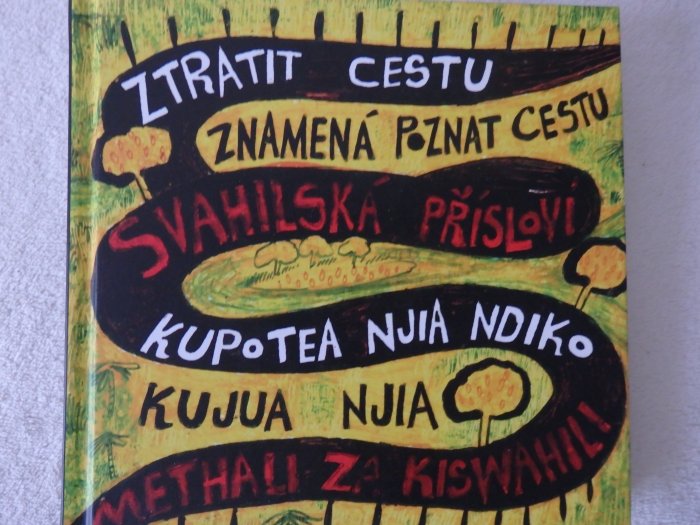 ZTRATIT CESTU
ZNAMENÁ POZNAT CESTU
SVAHILSKÁ PŘÍSLOVÍ
KUPOTEA NJIA NDIKO
KUJUA NJIA
METHALI ZA KISWAHILI